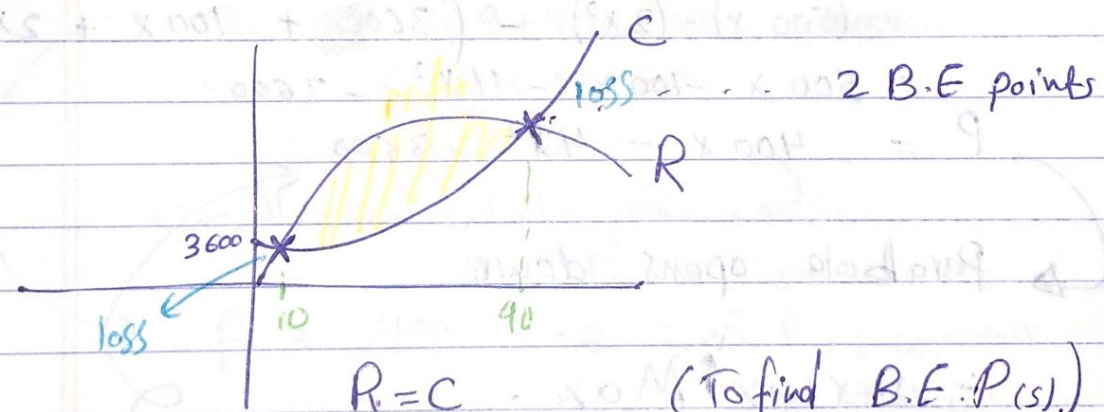 C
loss
2 B.E points
profit
R
3600
loss
10
90
R = C (To find B.E.P(s).)